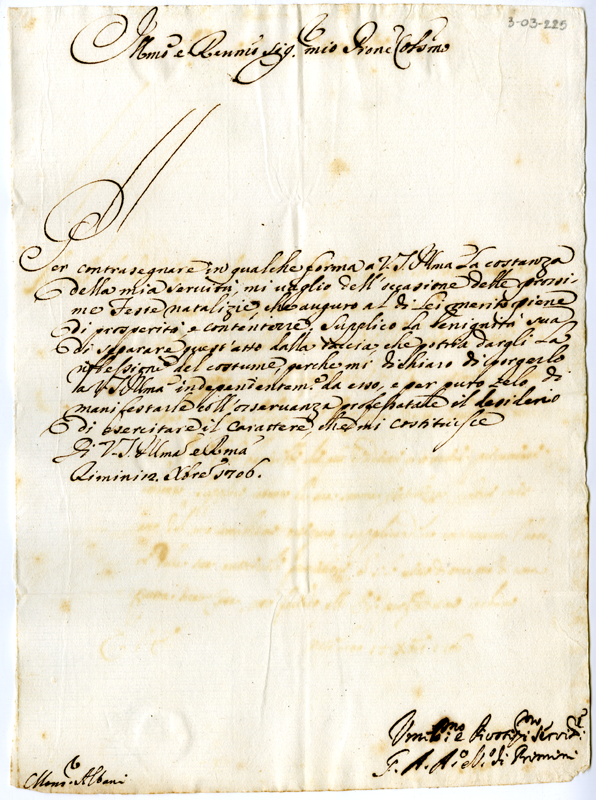 3-03-225
Illmo e Revmo Sig.r mio Prone Colmo
Per contrasegnare in qualche forma a V. S. Illma La costanza
della mia servitù, mi vaglio dell'occasione delle prossi-
me Feste natalizie, che auguro al di Lei merito piene
di prosperità e contentezze; Supplico La benignità sua
di separare quest'atto dalla taccia, che potria dargli La
riflessione del costume, perche mi dichiaro di porgerlo
la V. S. Illma independentem.te da esso, e per puro zelo di
manifestarle coll'osservanza professatale il desiderio
di esercitare il carattere, che mi costituisce
Di V. S. Illma e Rma
Rimini 12. Xbre 1706.
Umilmo e
Servid.
di Rimini
Mons.r Albani